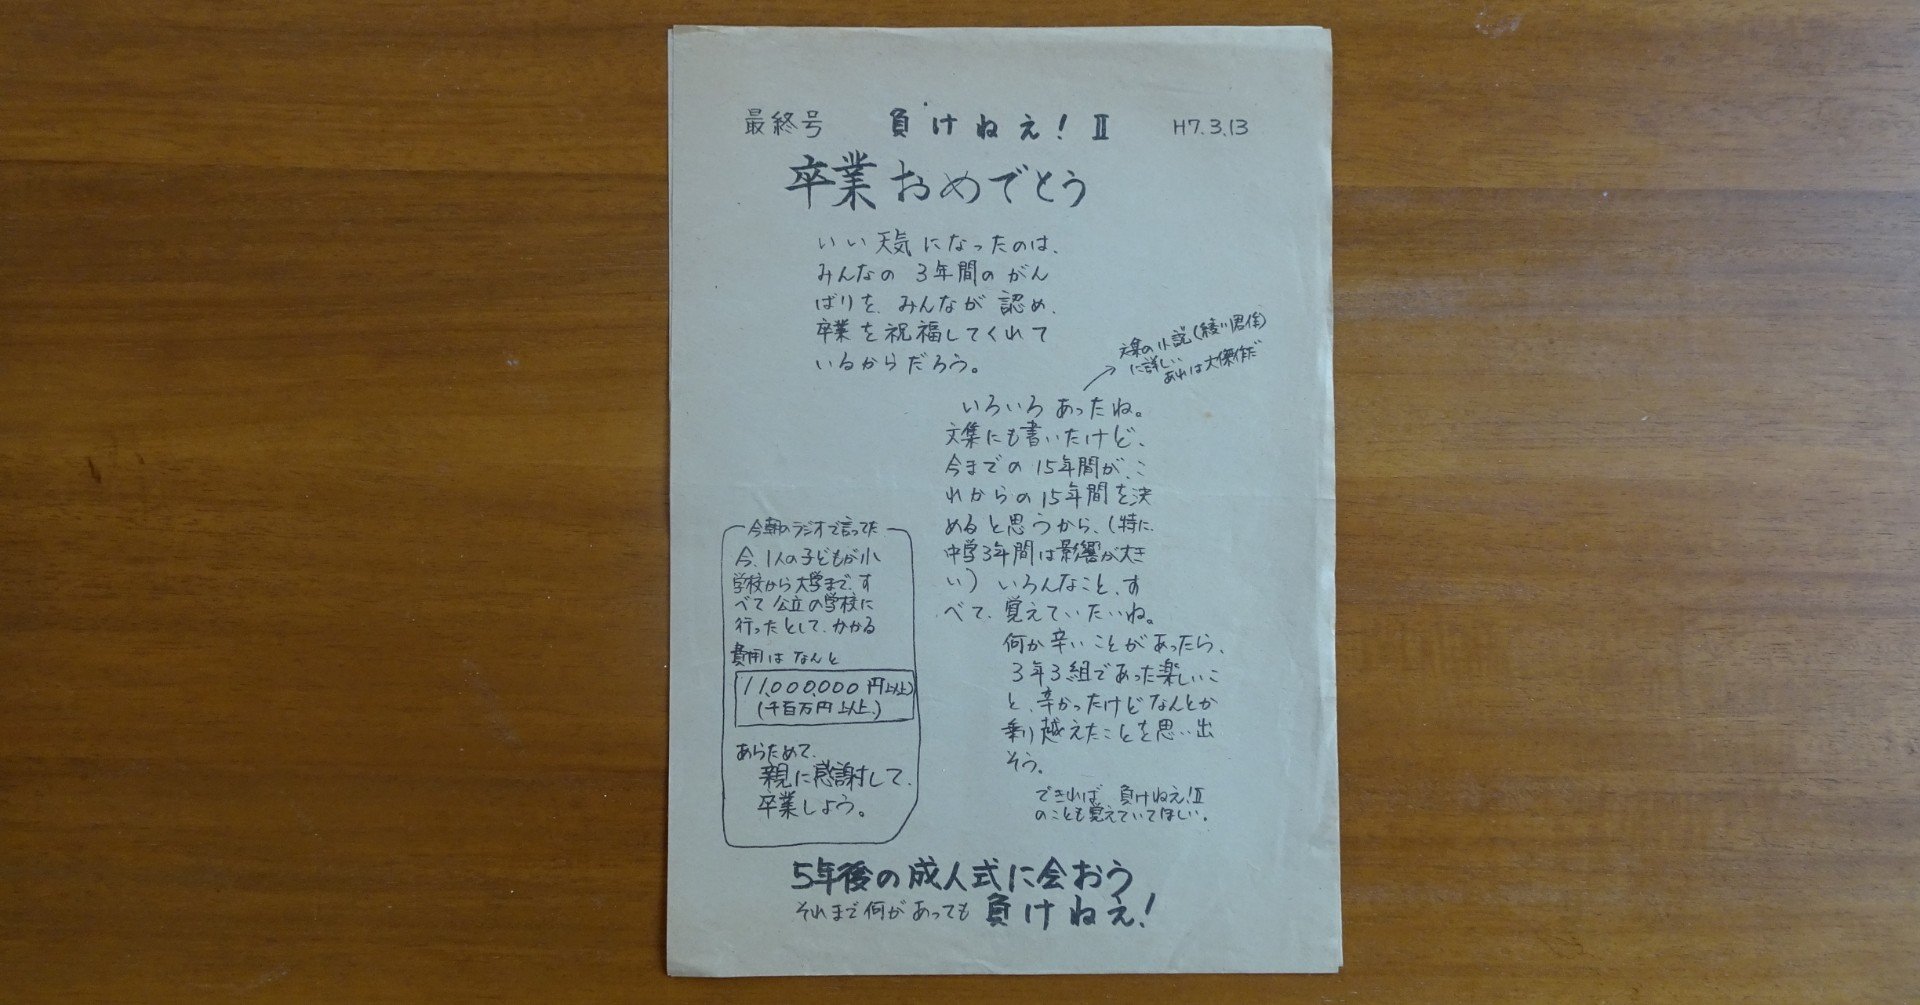 最終号 負けねぇ!Ⅱ H7.3.13
卒業おめでとう
いい天気になったのは、
みんなの3年間のがん
ばりを、みんなが認め、
卒業を祝福してくれて
いるからだろう。
文集の小説(綾川君作)
に詳しい
あれは大傑作だ
いろいろあったね。
文集にも書いたけど、
今までの15年間が、こ
れからの15年間を決
めると思うから、(特に、
中学3年間は影響が大き
い) いろんなこと、す
べて、覚えていたいね。
何か辛いことがあったら、
3年3組であった楽しいこ
と、辛かったけどなんとか
乗り越えたことを思い出
そう。
できれば 負けねぇ!Ⅱ
のことも覚えていてほしい。
今朝のラジオで言ってた
今、1人の子どもが小
学校から大学まで、す
べて公立の学校に
行ったとして、かかる
費用は なんと
11,000,000円以上)
(千百万円以上)
あらためて、
親に感謝して、
卒業しよう。
5年後の成人式に会おう
それまで何があっても 負けねぇ!